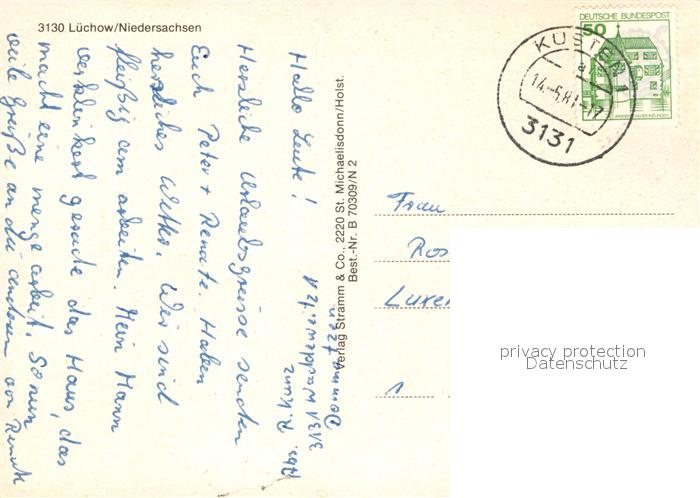 3130 Lüchow/Niedersachsen
DEUTSCHE BUNDESPOST
50
KÜSTEN 1
a
14.-6.81-17
3131
Hallo Leute!
Herzliche Urlaubsgrüsse senden
Euch Peter + Renate. Haben
herrliches Wetter. Wir sind
fleißig am arbeiten. Mein Mann
verklinkert gerade das Haus, das
macht eine menge arbeit. So nun
viele Grüße an die anderen von Renate
Abs.
3131
Verlag Stramm & Co., 2220 St. Michaelisdonn/Holst.
Best.-Nr. B 70309/N 2
Frau
Ros
Luxe
1
privacy protection
Datenschutz